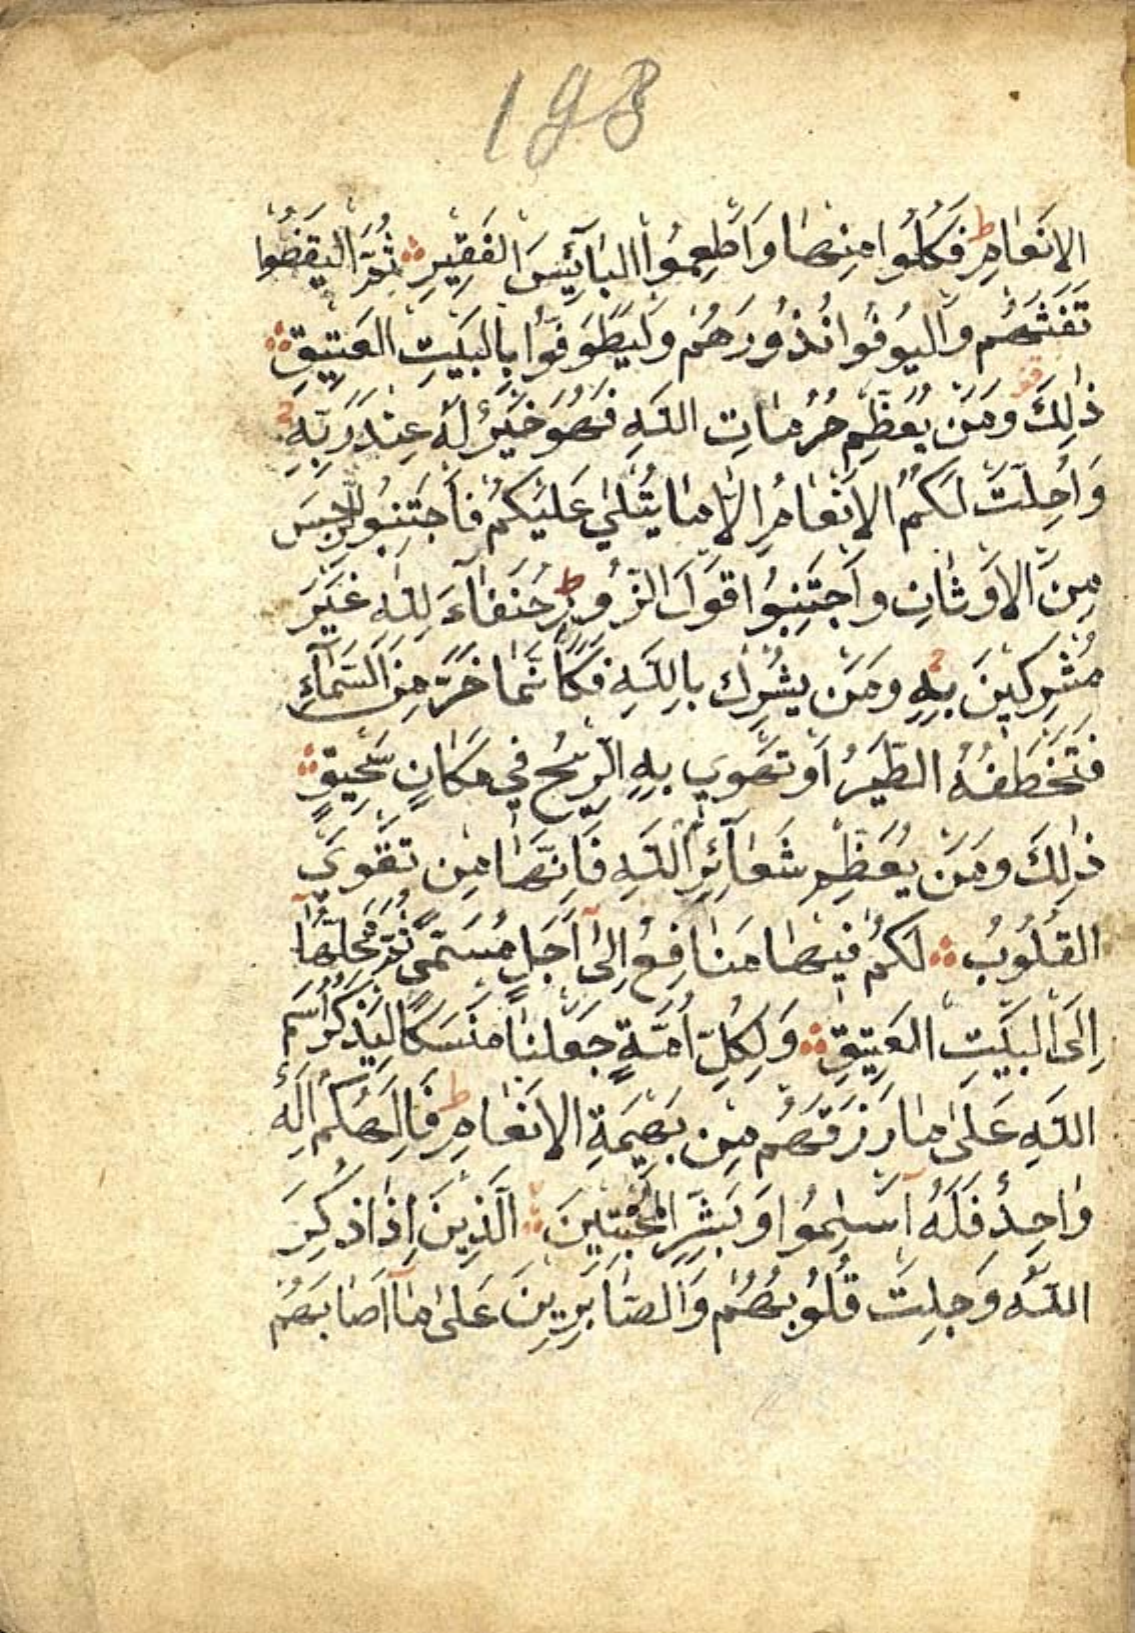 198
الاَنعٰامِ ط فَكُلُوا مِنهٰا وَاَطعِمُوا البٰآئِسَ الفَقِيرِ ثُمَّ اليَقضُوا
تَفَثَهُم وَاليُوفُوا نُذُورَهُم وَليَطَّوَّفُوا بِالبَيتِ العَتِيقِ
ذٰلِكَ وَمَن يُعَظِّم حُرُمٰاتِ اللَّهِ فَهُوَ خَيرٌ لَهُ عِندَ رَبِّهِ
وَاُحِلَّت لَكُمُ الاَنعٰامُ اِلاّٰ مٰا يُتلٰي عَلَيكُم فَاجتَنِبُو الرِّجسَ
مِنَ الاَوثٰانِ وَاجتَنِبُوا قَولَ الزُّورِ ط حُنَفٰآءَ لِلّٰهِ غَيرَ
مُشرِكِينَ بِهِ وَمَن يُشرِك بِاللَّهِ فَكَاَنَّمٰا خَرَّ مِنَ السَّمٰآءِ
فَتَخطَفُهُ الطَّيرُ اَو تَهوِي بِهِ الرِّيحُ فِي مَكٰانٍ سَحِيقٍ
ذٰلِكَ وَمَن يُعَظِّم شَعٰآئِرَ اللَّهِ فَاِنَّهٰا مِن تَقوَي
القُلُوبُ لَكُم فِيهٰا مَنٰافِعُ اِلىٰٓ اَجَلٍ مُسَمّيً ثُمَّ مَحِلُّهٰآ
اِلَى البَيتِ العَتِيقِ وَلِكُلِّ اُمَّةٍ جَعَلنٰا مَنسَكًا لِيَذكُرُ اسمَ
اللَّهِ عَلىٰ مٰا رَزَقَهُم مِن بَهِيمَةِ الاَنعٰامِ ط فَاِلٰهُكُم اِلٰهٌ
وٰاحِدٌ فَلَهُٓ اَسلِمُوا وَبَشِّرِ المُخبِتِينَ اَلَّذِينَ اِذٰا ذُكِرَ
اللَّهُ وَجِلَت قُلُوبُهُم وَالصّٰابِرِينَ عَلىٰ مٰآ اَصٰابَهُم